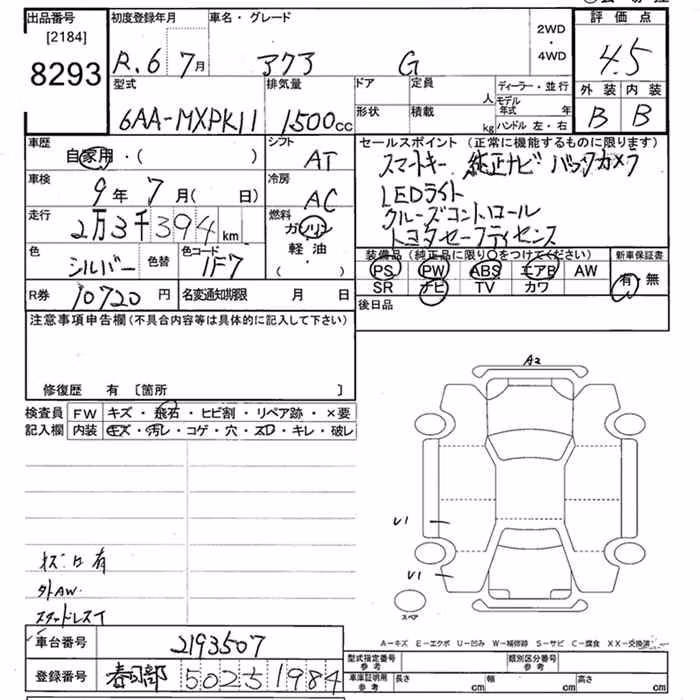 出品番号
[2184]
8293
初度登録年月
R.6 7月
車名・グレード
アクア G
2WD
・
4WD
評価点
4.5
外装 内装
B B
型式
6AA-MXPK11
排気量
1500cc
ドア 定員 人
形状 積載 kg
ディーラー・並行
モデル年式 年
ハンドル 左・右
車歴
自家用・( )
シフト
AT
車検
9年 7月( 日)
冷房
AC
走行
2万3千394km
燃料
ガソリン
軽油
( ・ )
色
シルバー
色替
色コード
1F7
R券
10720円
名変通知期限 月 日
セールスポイント (正常に機能するものに限ります)
スマートキー 純正ナビ バックカメラ
LEDライト
クルーズコントロール
トヨタセーフティセンス
装備品(純正品に限り○をつけてください)
PS PW ABS エアB AW
SR ナビ TV カワ
新車保証書
有・無
後日品
注意事項申告欄(不具合内容等は具体的に記入して下さい)
修復歴 有 [箇所 ]
検査員 FW キズ・飛石・ヒビ割・リペア跡・×要
記入欄 内装 キズ・汚レ・コゲ・穴・スレ・キレ・破レ
有
外AW.
スタッドレスT
A2
U1
U1
スペア
A-キズ E-エクボ U-凹み W-補修跡 S-サビ C-腐食 XX-交換済
車台番号
2193507
登録番号
春日部 502 5 1984
型式指定番号
参考
類別区分番号
参考
車庫証明用
参考
長さ cm 幅 cm 高さ cm